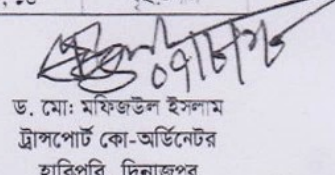 ড. মো: মফিজউল ইসলাম
ট্রান্সপোর্ট কো-অর্ডিনেটর
হাবিপ্রবি, দিনাজপুর